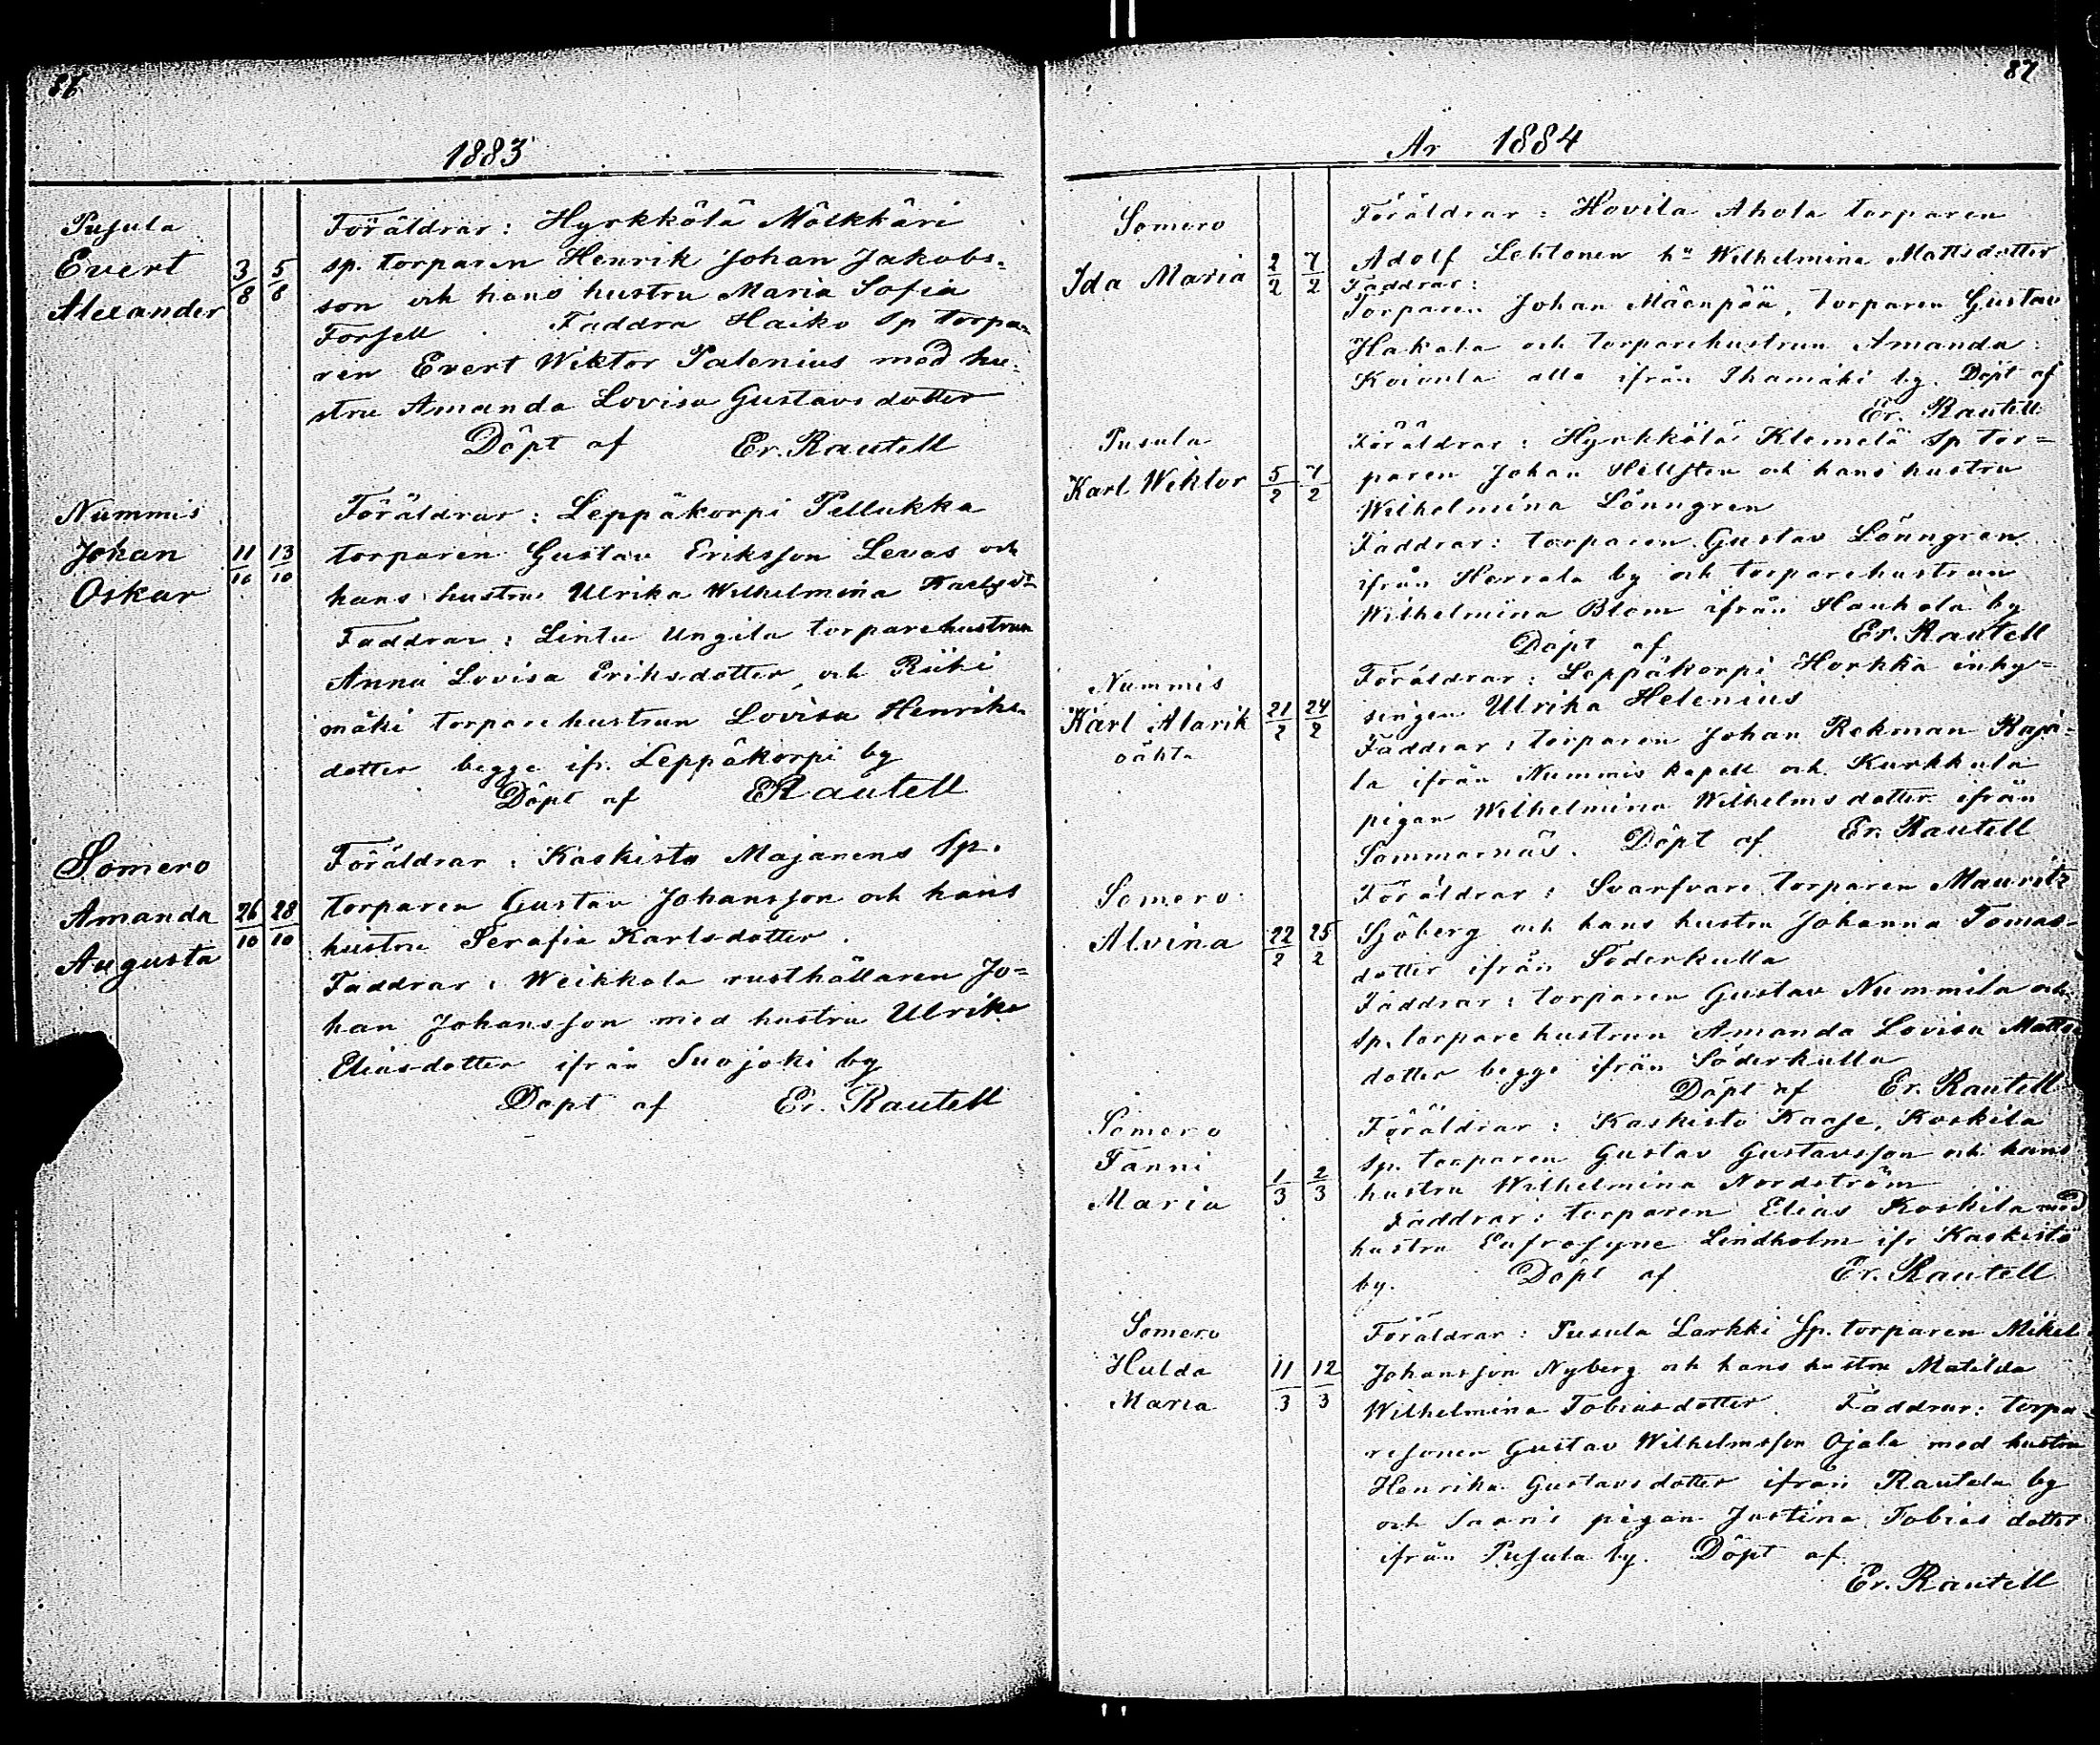 86
1883
Pusula
Evert
Alexander
3/8 5/8
Föräldrar: Hyrkkölä Mölkkäri
sp. torparen Henrik Johan Jakobs-
son och hans hustru Maria Sofia
Forsell Faddra Haiko Sp torpa-
ren Evert Wiktor Palenius med hu-
stru Amanda Lovisa Gustavsdotter
Döpt af Er. Rautell
Nummis
Johan
Oskar
11/10 13/10
Föräldrar: Leppäkorpi Pellukka
torparen Gustav Eriksson Levas och
hans hustru Ulrika Wilhelmina Karlsdr
Faddrar: Lintu Ungila torparehustrun
Anna Lovisa Eriksdotter, och Riihi
mäki torparehustrun Lovisa Henriks-
dotter begge ifr. Leppäkorpi by
Döpt af ERautell
Somero
Amanda
Augusta
26/10 28/10
Föräldrar: Kaskisto Majanens Sp.
torparen Gustav Johansson och hans
hustru Serafia Karlsdotter.
Faddrar: Weikkola rusthållaren Jo-
han Johansson med hustru Ulrika
Eliasdotter ifrån Suojoki by
Döpt af Er. Rautell
87
År 1884
Somero
Ida Maria
2/2 7/2
Föräldrar: Hovila Ahola torparen
Adolf Lehtonen hu Wilhelmina Mattsdotter
Faddrar:
Torparen Johan Mäenpää, torparen Gustav
Hakala och torparehustrun Amanda
Koivula alla ifrån Ihamäki by. Döpt af
Er. Rautell
Pusula
Karl Wiktor
5/2 7/2
Föräldrar: Hyrkkölä Klemelä Sp tor-
paren Johan Hellsten och hans hustru
Wilhelmina Lönngren
Faddrar: torparen Gustav Lönngren
ifrån Herrala by och torparehustrun
Wilhelmina Blom ifrån Hauhola by
Döpt af Er. Rautell
Nummis
Karl Alarik
oäkta
21/2 24/2
Föräldrar: Leppäkorpi Horkka inhy-
singen Ulrika Helenius
Faddrar: torparen Johan Rekman Raja-
la ifrån Nummis kapell och Kurkkula
pigan Wilhelmina Wilhelmsdotter ifrån
Sommarnäs. Döpt af Er. Rautell
Somero
Alvina
22/2 25/2
Föräldrar: Svarfvare torparen Mauritz
Sjöberg och hans hustru Johanna Tomas-
dotter ifrån Söderkulla
Faddrar: torparen Gustav Nummila och
sp. torparehustrun Amanda Lovisa Matts-
dotter begge ifrån Söderkulla
Döpt af Er. Rautell
Somero
Fanni
Maria
1/3 2/3
Föräldrar: Kaskisto Kaase, Koskila
sp. torparen Gustav Gustavsson och hans
hustru Wilhelmina Nordström
Faddrar: torparen Elias Koskila med
hustru Eufrosyne Lindholm ifr Kaskisto
by. Döpt af Er. Rautell
Somero
Hulda
Maria
11/3 12/3
Föräldrar: Pusula Larkki Sp. torparen Mikel
Johansson Nyberg och hans hustru Matilda
Wilhelmina Tobiasdotter. Faddrar: torpa-
resonen Gustav Wilhelmsson Ojala med hustru
Henrika Gustavsdotter ifrån Rautela by
och Saaris pigan Justina Tobias dotter
ifrån Pusula by. Döpt af
Er. Rautell